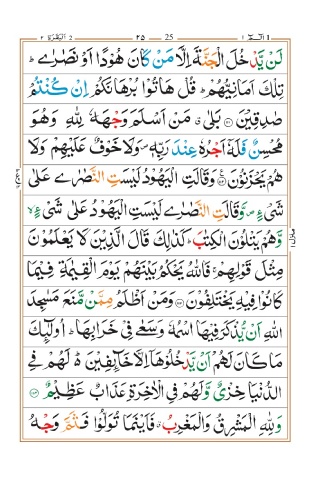 الٓمّٓ ١ 25 ٢٥ 2 البقرة ٢
لَنْ يَّدْخُلَ الْجَنَّةَ اِلَّا مَنْ كَانَ هُوْدًا اَوْ نَصٰرٰى ؕ
تِلْكَ اَمَانِيُّهُمْ ؕ قُلْ هَاتُوْا بُرْهَانَكُمْ اِنْ كُنْتُمْ
صٰدِقِيْنَ ۝ بَلٰى ۗ مَنْ اَسْلَمَ وَجْهَهٗ لِلّٰهِ وَهُوَ
مُحْسِنٌ فَلَهٗۤ اَجْرُهٗ عِنْدَ رَبِّهٖ ۪ وَلَا خَوْفٌ عَلَيْهِمْ وَلَا
هُمْ يَحْزَنُوْنَ ۝ وَقَالَتِ الْيَهُوْدُ لَيْسَتِ النَّصٰرٰى عَلٰى
شَىْءٍ ۪ وَّقَالَتِ النَّصٰرٰى لَيْسَتِ الْيَهُوْدُ عَلٰى شَىْءٍ ۙ
وَّهُمْ يَتْلُوْنَ الْكِتٰبَ ؕ كَذٰلِكَ قَالَ الَّذِيْنَ لَا يَعْلَمُوْنَ
مِثْلَ قَوْلِهِمْ ۚ فَاللّٰهُ يَحْكُمُ بَيْنَهُمْ يَوْمَ الْقِيٰمَةِ فِيْمَا
كَانُوْا فِيْهِ يَخْتَلِفُوْنَ ۝ وَمَنْ اَظْلَمُ مِمَّنْ مَّنَعَ مَسٰجِدَ
اللّٰهِ اَنْ يُّذْكَرَ فِيْهَا اسْمُهٗ وَسَعٰى فِىْ خَرَابِهَا ؕ اُولٰٓئِكَ
مَا كَانَ لَهُمْ اَنْ يَّدْخُلُوْهَاۤ اِلَّا خَآئِفِيْنَ ؕ لَهُمْ فِى
الدُّنْيَا خِزْىٌ وَّلَهُمْ فِى الْاٰخِرَةِ عَذَابٌ عَظِيْمٌ ۝
وَلِلّٰهِ الْمَشْرِقُ وَالْمَغْرِبُ ۗ فَاَيْنَمَا تُوَلُّوْا فَثَمَّ وَجْهُ